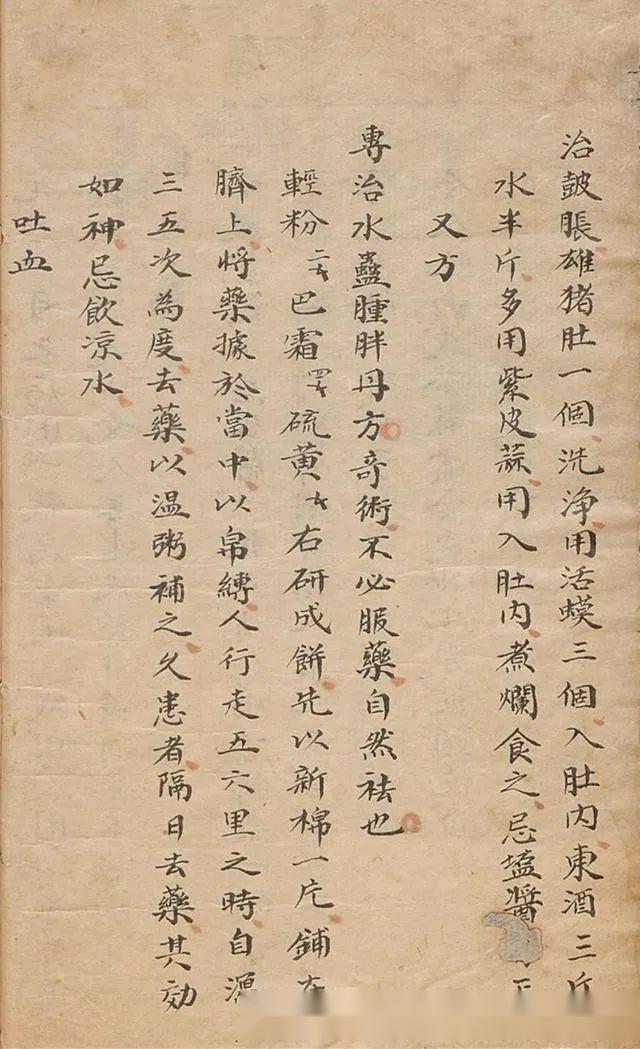 治皷脹雄猪肚一個洗净用活蟆三個入肚內東酒三斤
水半斤多用紫皮蒜用入肚内煮爛食之忌塩醬
又方
專治水蠱腫胖丹方竒術不必服藥自然袪也
輕粉二戔巴霜四戔硫黄戔右研成餅先以新棉一片鋪在
臍上将藥據於當中以帛縳人行走五六里之時自
三五次為度去藥以温粥補之久患者隔日去藥其効
如神忌飲凉水
吐血